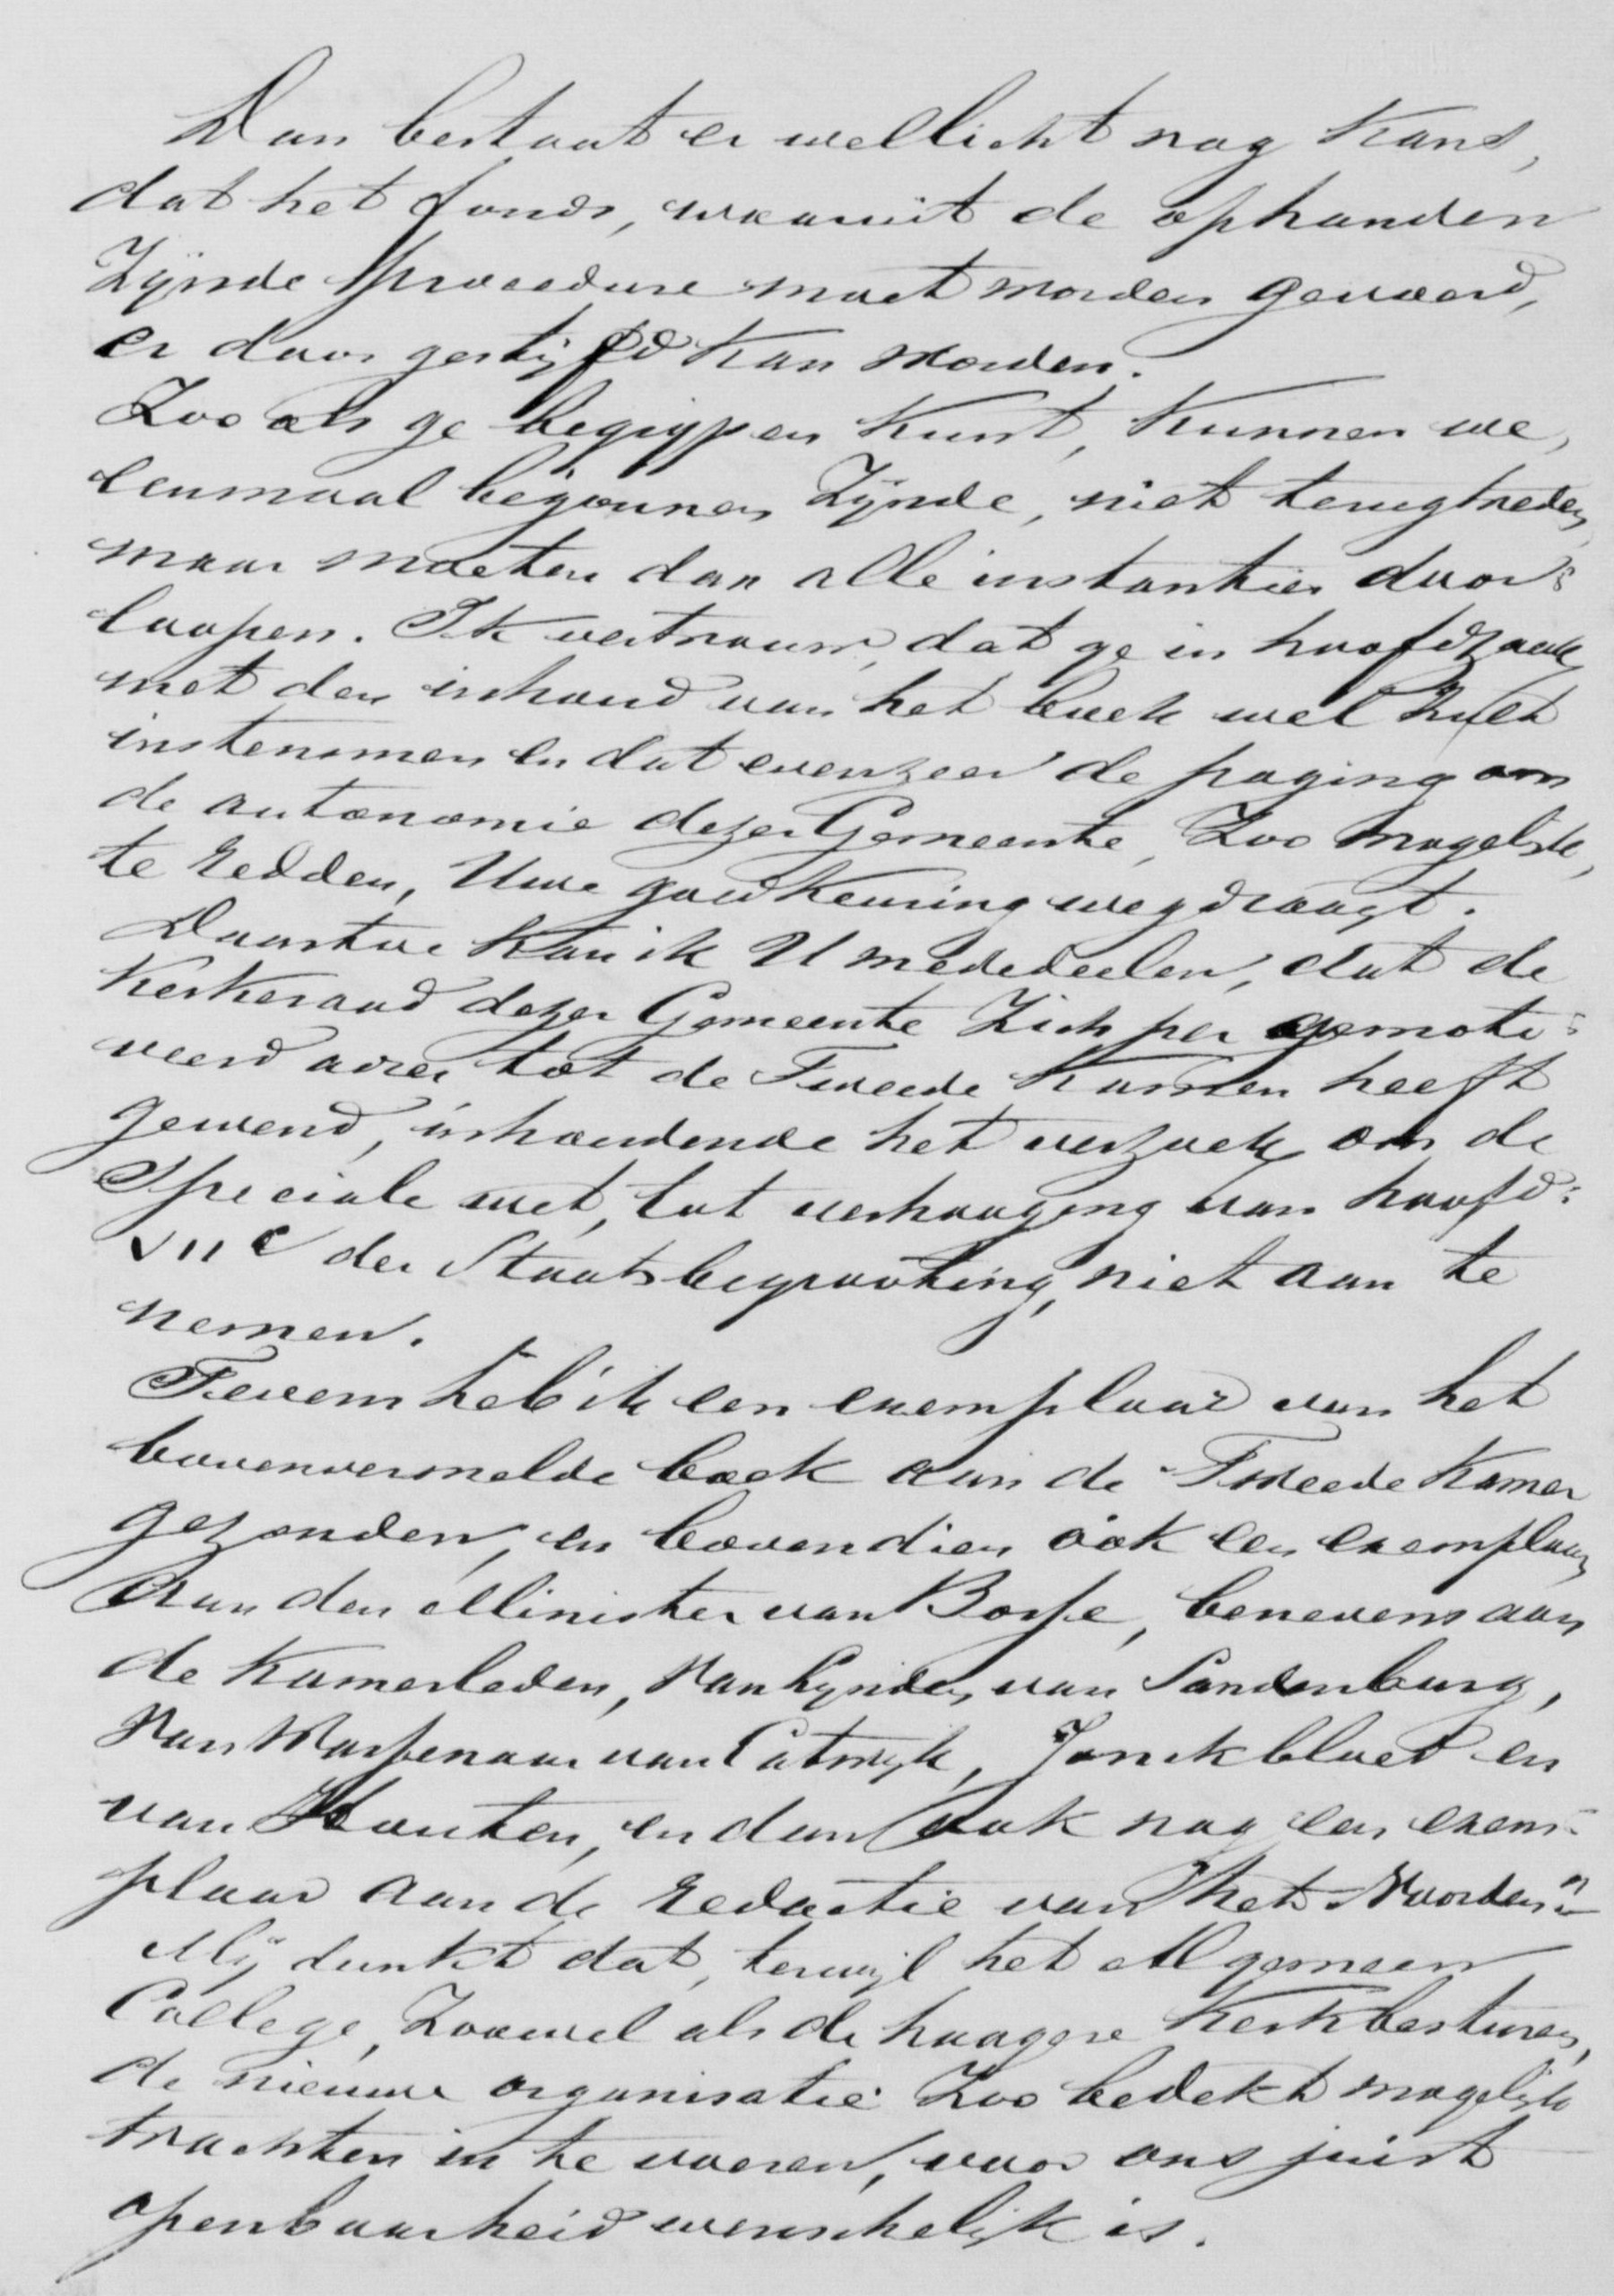 Dan bestaat er wellicht nog kans,
dat het fonds, waaruit de ophanden
zijnde procedure moet worden gevoerd,
er door gestijfd kan worden.
Zooals ge begrijpen kunt, kunnen we,
eenmaal begonnen zijnde, niet terugtreden,
maar moeten dan alle instantiën door=
loopen. Ik vertrouw, dat ge in hoofdzaak
met den inhoud van het boek wel zult
instemmen en dat evenzeer de poging om
de autonomie dezer Gemeente, zoo mogelijk,
te redden, Uwe goedkeuring wegdraagt.
Daartoe kan ik U mededeelen, dat de
Kerkeraad dezer Gemeente zich per gemoti=
veerd adres tot de Tweede Kamer heeft
gewend, inhoudende het verzoek om de
speciale wet, tot verhooging van hoofd=
VIIe der Staatsbegrooting, niet aan te
nemen.
Tevens heb ik een exemplaar van het
bovenvermelde boek aan de Tweede Kamer
gezonden, en bovendien ook een exemplaar
aan den Minister van Bosse, benevens aan
de Kamerleden, Van Lynden van Sandenburg,
Van Wassenaar van Catwijk, Jonckbloet en
van Houten, en dan ook nog een exem=
plaar aan de redactie van "het Noorden".
Mij dunkt dat, terwijl het Algemeen
College, zoowel als de hoogere Kerkbesturen,
de nieuwe organisatie zoo bedekt mogelijk
trachten in te voeren, voor ons juist
openbaarheid wenschelijk is.